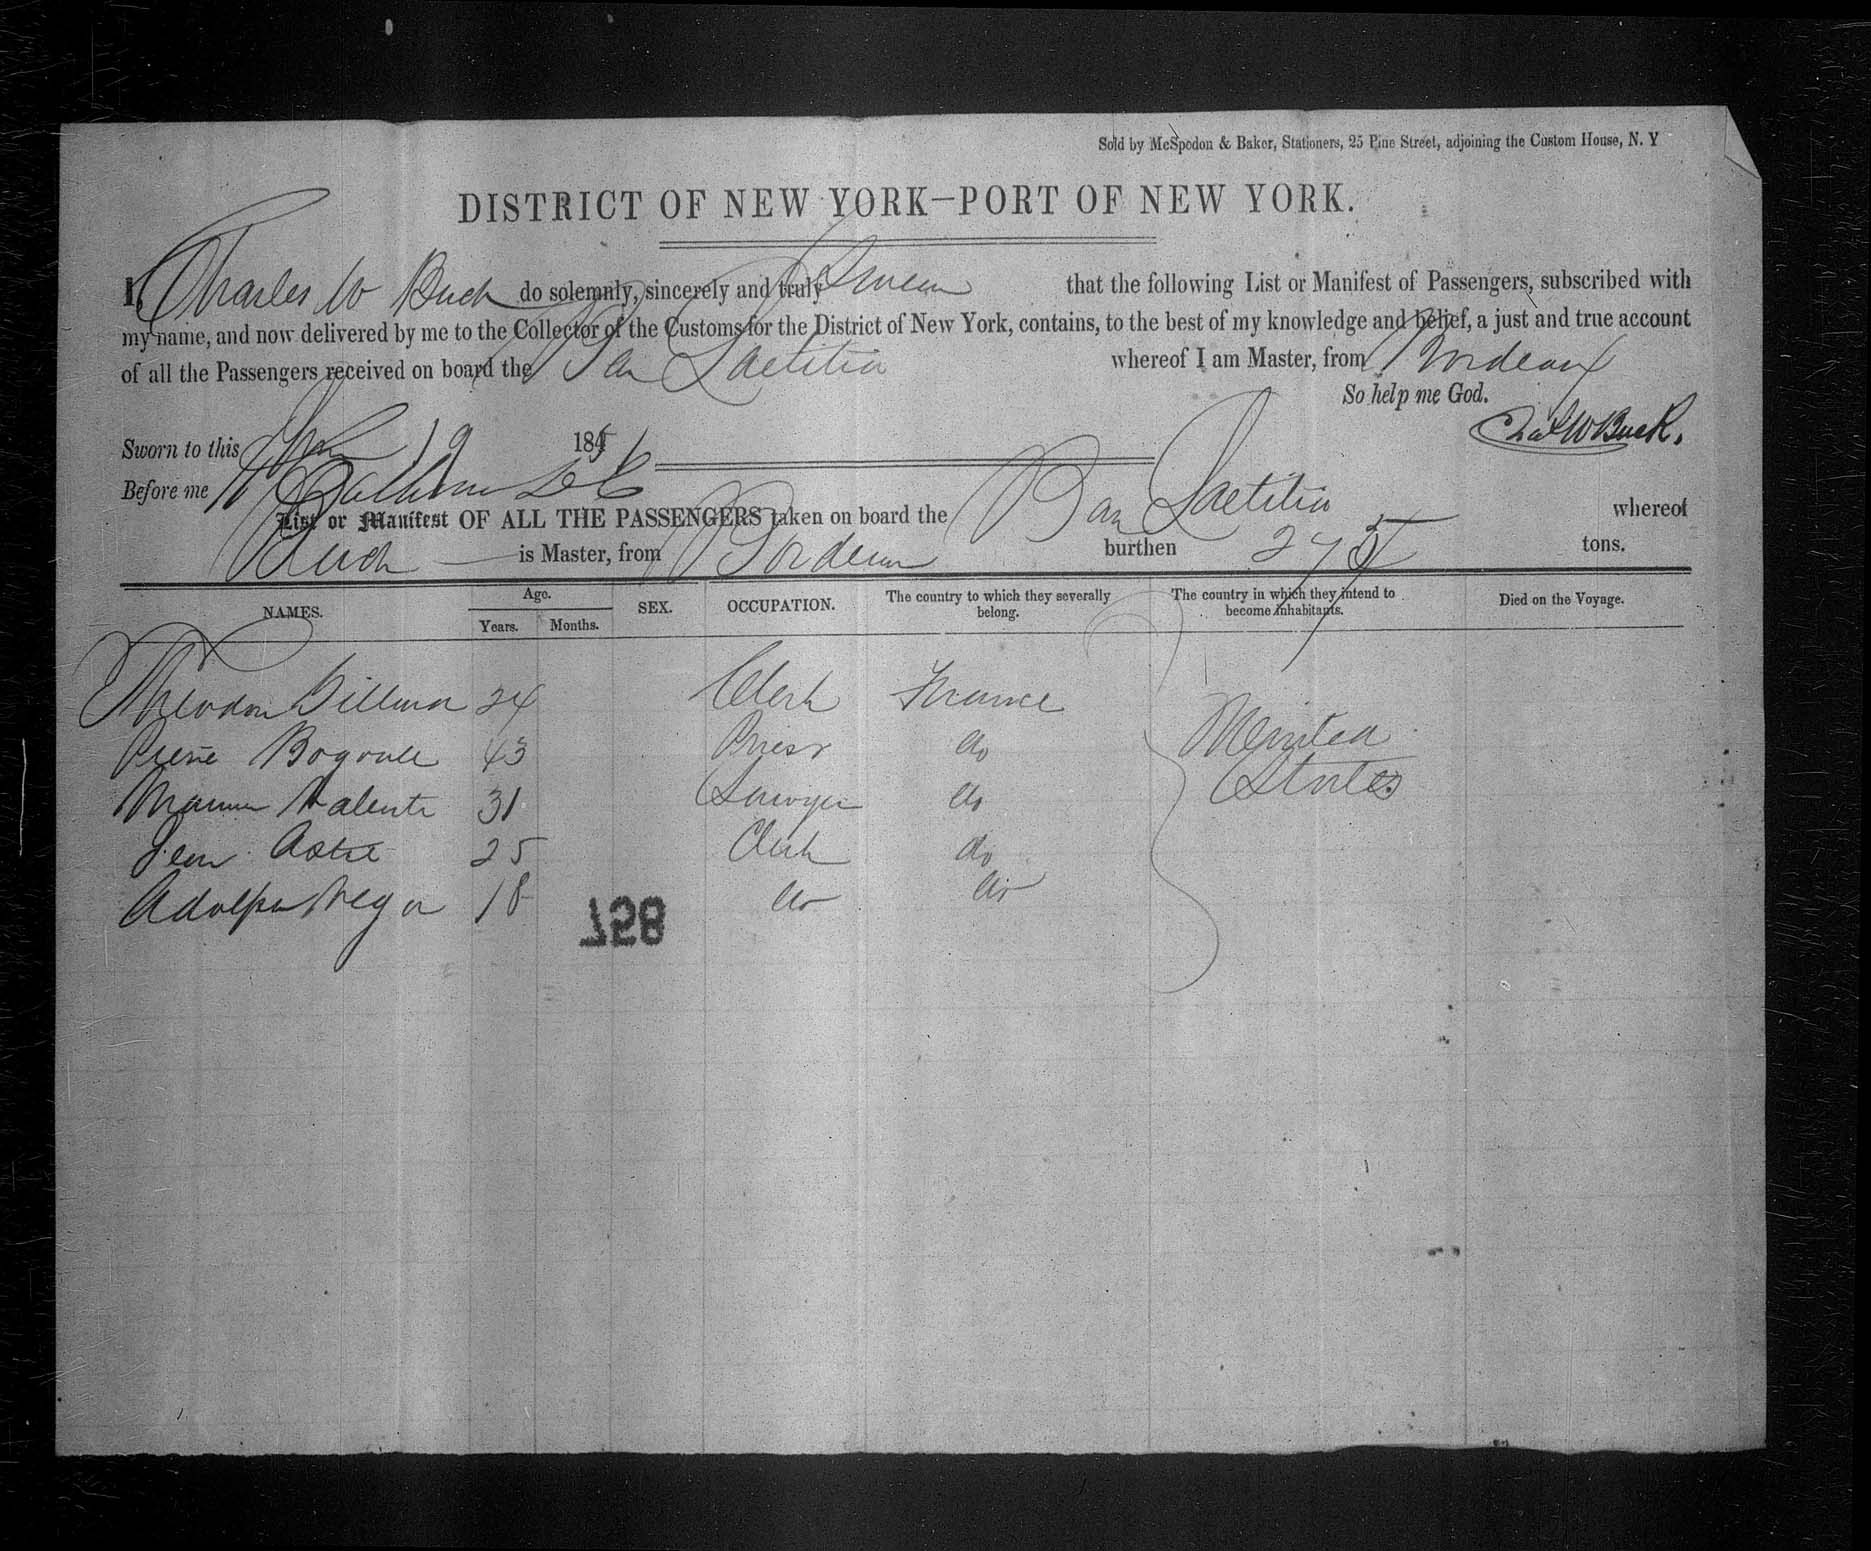 Sold by McSpedon & Baker, Stationers, 25 Pine Street, adjoining the Custom House, N. Y
DISTRICT OF NEW YORK—PORT OF NEW YORK.
I, Charles W Buck do solemnly, sincerely and truly Swear that the following List or Manifest of Passengers, subscribed with
my name, and now delivered by me to the Collector of the Customs for the District of New York, contains, to the best of my knowledge and belief, a just and true account
of all the Passengers received on board the Bar Laetitia whereof I am Master, from Bordeaux
So help me God.
Chas W Buck.
Sworn to this 19 1856
Before me
List or Manifest OF ALL THE PASSENGERS taken on board the Bar Laetitia whereof
Buck is Master, from Bordeaux burthen 275 tons.
NAMES. Age. Years. Months. SEX. OCCUPATION. The country to which they severally belong. The country in which they intend to become inhabitants. Died on the Voyage.
24 Clerk France
Pierre 43 Priest do United
Valente 31 Sawyer do States
Jean Astie 25 Clerk do
Adolphe 18 do do
758